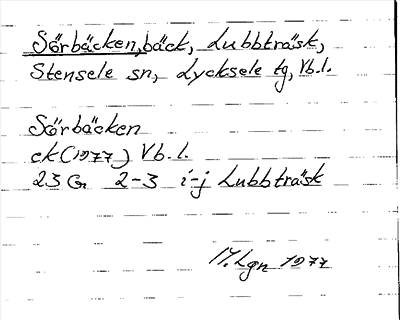 Sörbäcken, bäck, Lubbträsk,
Stensele sn, Lycksele tg, Vb.l.
Sörbäcken
ek (1977) Vb.l.
23 G 2-3 i-j Lubbträsk
Lgn 1977